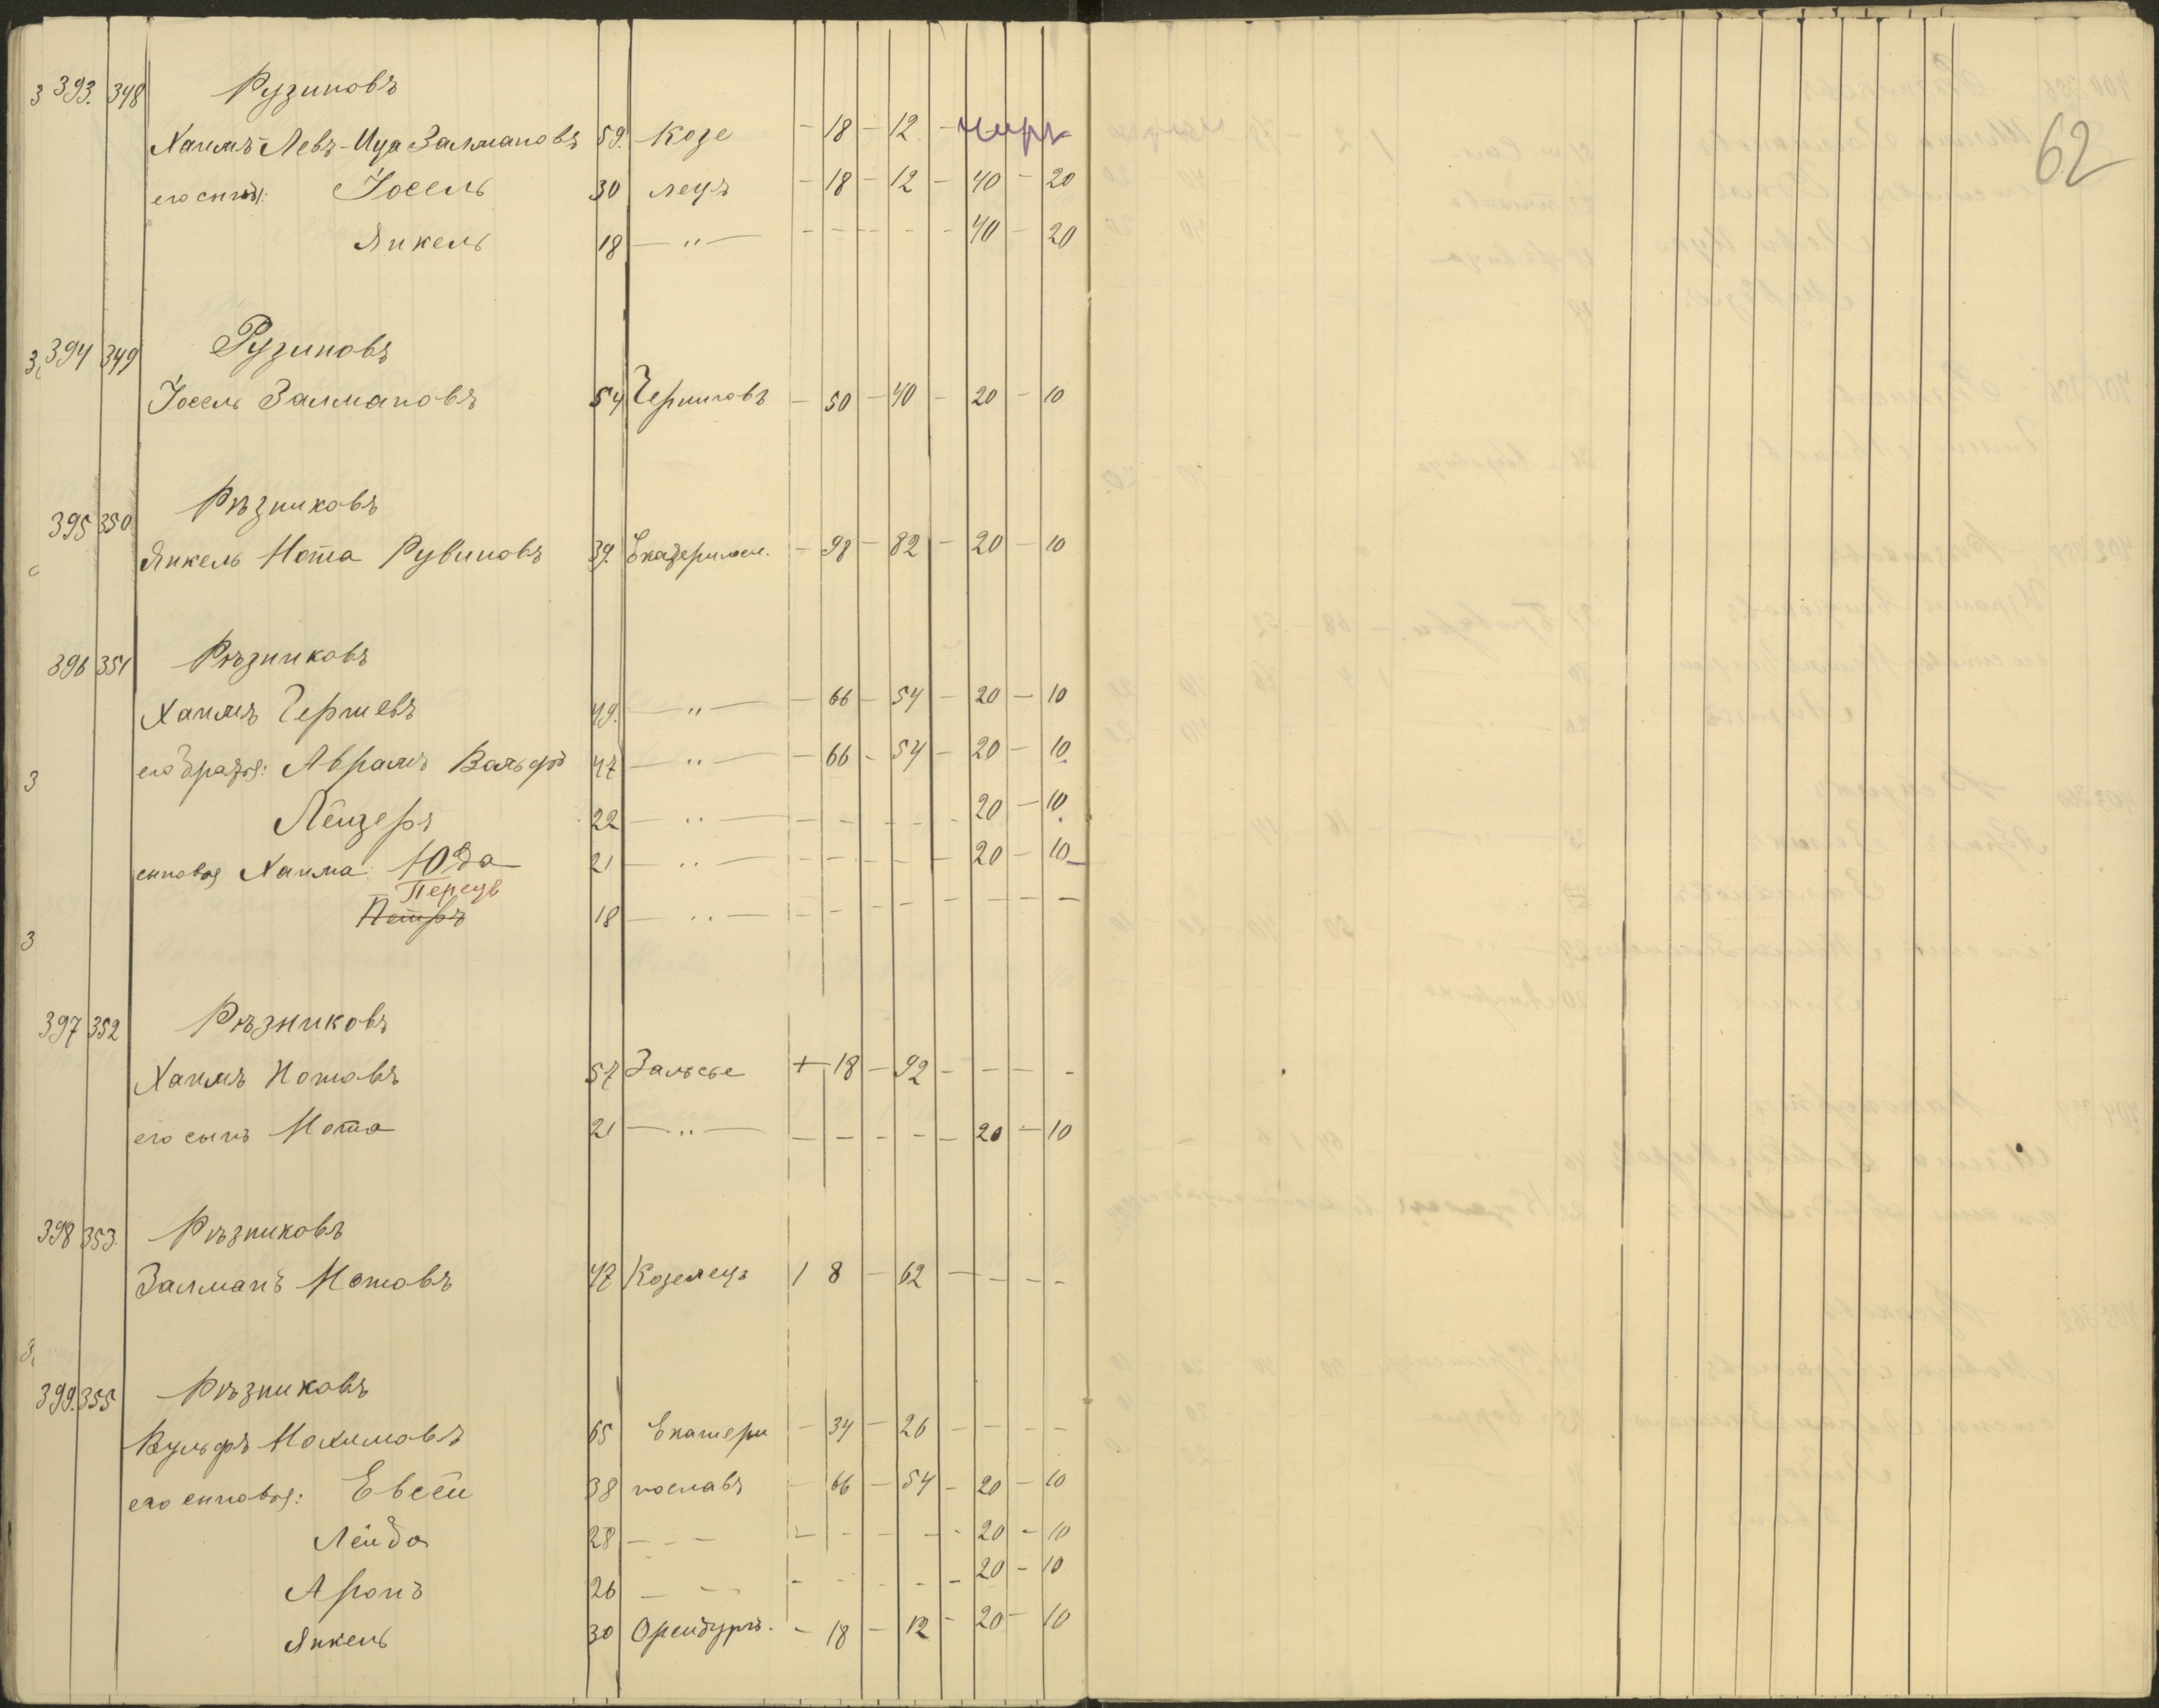 62
3 393. 348 Рузиновъ
Хаимъ-Левъ-Ица Залмановъ 59. Козе - 18 - 12 -
его сын. Іосель 30 лецъ - 18 - 12 - 40 - 20
Янкель 18 — " — - - - - - 40 - 20
3 394 349 Рузиновъ
Іосель Залмановъ 54 Черниговъ - 50 - 40 - 20 - 10
395 350 Рѣзниковъ
Янкель Нота Рувиновъ 39. - 98 - 82 - 20 - 10
396 351 Рѣзниковъ
Хаимъ 49. — " — - 66 - 54 - 20 - 10
3 его братья: Абрамъ Вольфъ 47 — " — - 66 - 54 - 20 - 10
Лейзеръ 22 — " — - - - - - 20 - 10
сыновья Хаима: Юда 21 — " — - - - - - 20 - 10
Перецъ
3 Петръ 18 — " — - - - - - - - -
397 352 Рѣзниковъ
Хаимъ Нотовъ 57 Залѣсье + 18 - 92 - - - -
его сынъ Нота 21 — " — - - - - - 20 - 10
398 353 Рѣзниковъ
Залманъ Нотовъ 47 Козелецъ 1 8 - 62 - - - -
3 399. 355 Рѣзниковъ
Вульфъ Нохимовъ 65 Екатери - 34 - 26 - - - -
его сыновья: Евсей 38 нославъ - 66 - 54 - 20 - 10
Лейба 28 - - - - - - - - 20 - 10
Аронъ 26 - - - - - - - 20 - 10
Янкель 30 Оренбургъ. - 18 - 12 - 20 - 10